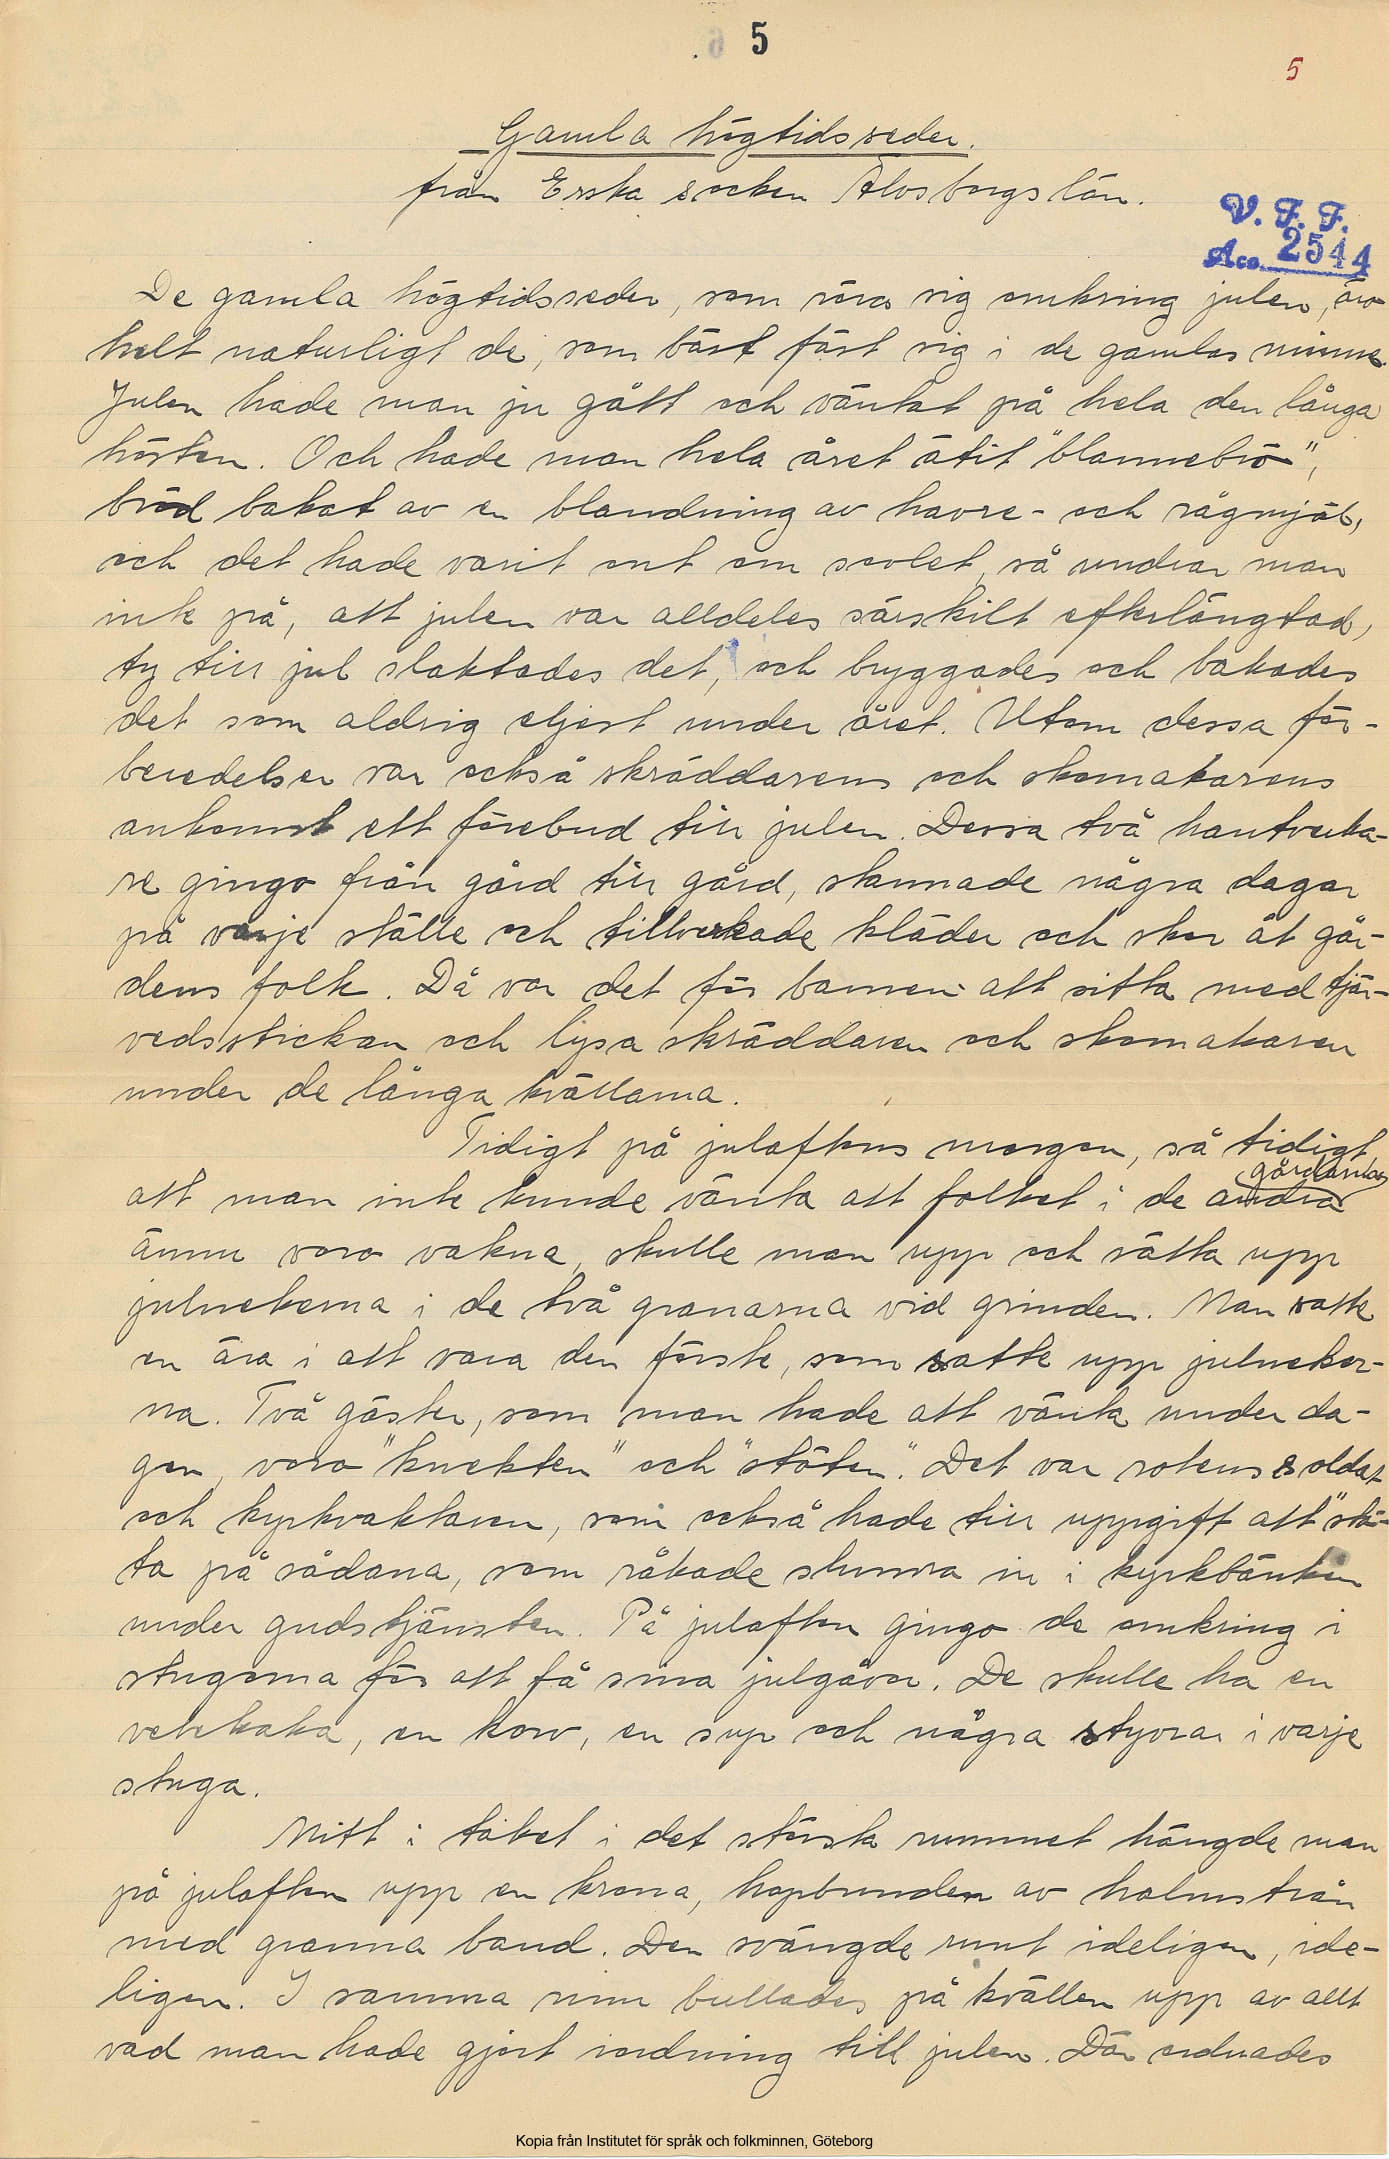 5
5
Gamla högtidsseder.
från Erska socken Älvsborgs län.
V. F. F.
Acc. 2544
De gamla högtidsseder, som röra sig omkring julen, äro
helt naturligt de, som bäst fäst sig i de gamlas minne.
Julen hade man ju gått och väntat på hela den långa
hösten. Och hade man hela året ätit "blannebrö",
bröd bakat av en blandning av havre- och rågmjöl,
och det hade varit ont om sovlet, så undrar man
inte på, att julen var alldeles särskilt efterlängtad,
ty till jul slaktades det, och bryggades och bakades
det som aldrig eljest under året. Utom dessa för-
beredelser var också skräddarens och skomakarens
ankomst ett förebud till julen. Dessa två hantverka-
re gingo från gård till gård, stannade några dagar
på varje ställe och tillverkade kläder och skor åt går-
dens folk. Då var det för barnen att sitta med tjär-
vedsstickan och lysa skräddaren och skomakaren
under de långa kvällarna.
Tidigt på julaftons morgon, så tidigt
gårdarna
att man inte kunde vänta att folket i de andra
ännu voro vakna, skulle man upp och sätta upp
julnekerna i de två granarna vid grinden. Man satte
en ära i att vara den förste, som satte upp julneker-
na. Två gäster, som man hade att vänta under da-
gen, voro "knekten" och "stöten". Det var rotens soldat
och kyrkvaktaren, som också hade till uppgift att "stö-
ta på" sådana, som råkade slumra in i kyrkbänken
under gudstjänsten. På julafton gingo de omkring i
stugorna för att få sina julgåvor. De skulle ha en
vetekaka, en korv, en sup och några styvrar i varje
stuga.
Mitt i taket i det största rummet hängde man
på julafton upp en krona, hopbunden av halmstrån
med granna band. Den svängde runt ideligen, ide-
ligen. I samma rum bullades på kvällen upp av allt
vad man hade gjort iordning till julen. Där ordnades
Kopia från Institutet för språk och folkminnen, Göteborg